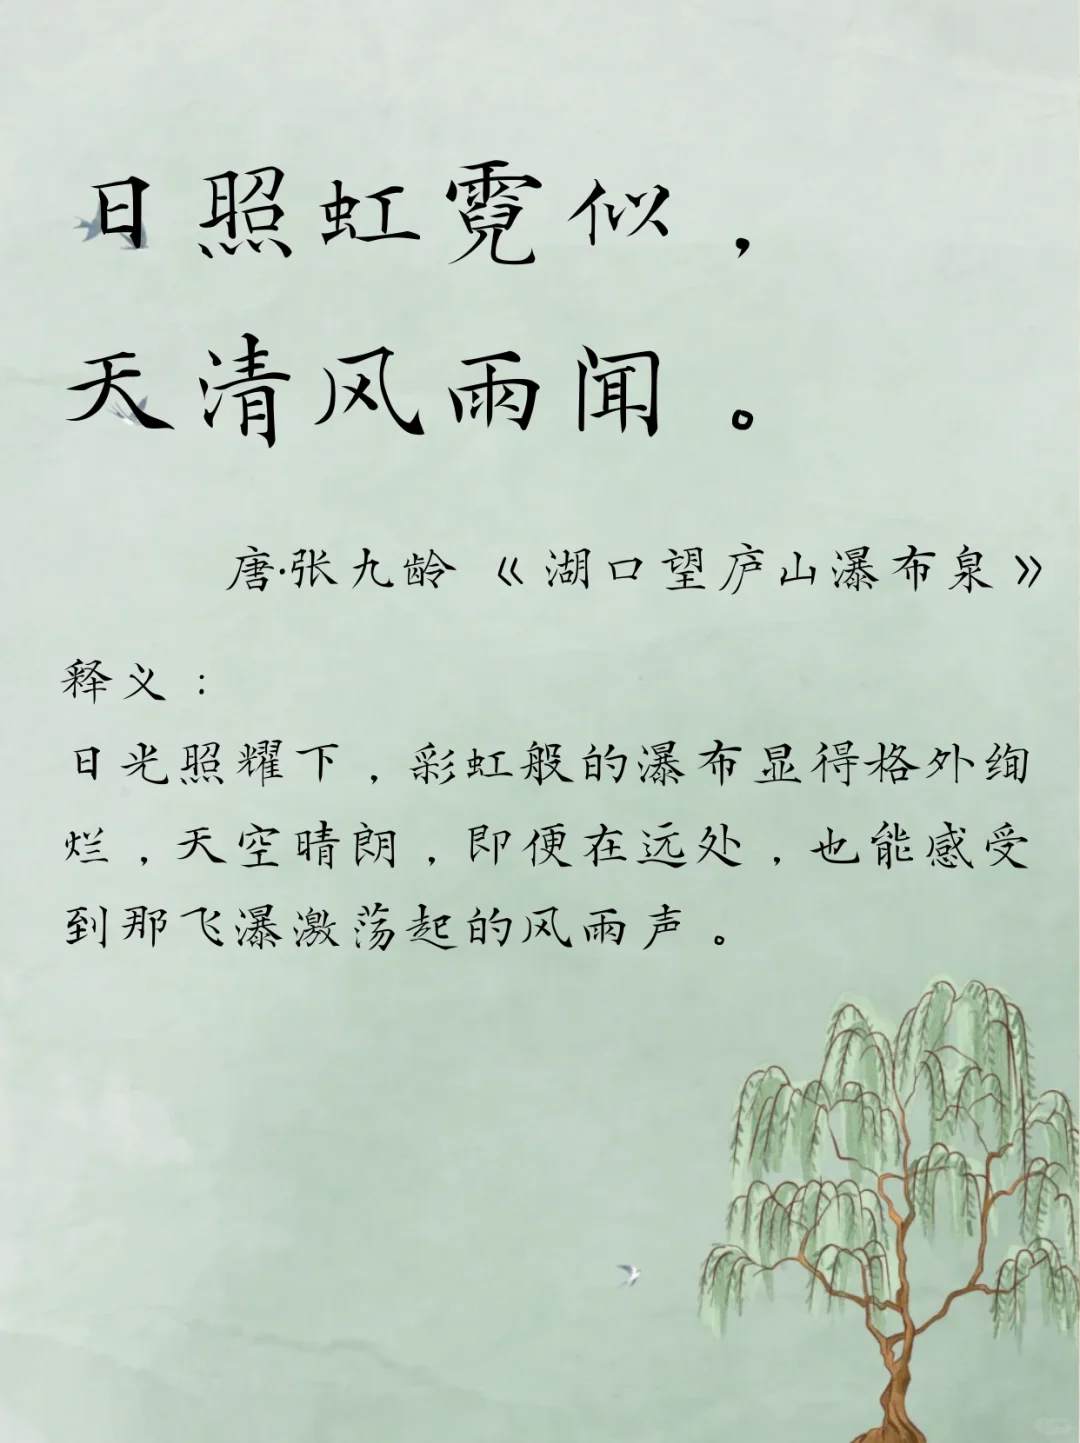 日照虹霓似，
天清风雨闻。
唐·张九龄《湖口望庐山瀑布泉》
释义：
日光照耀下，彩虹般的瀑布显得格外绚
烂，天空晴朗，即便在远处，也能感受
到那飞瀑激荡起的风雨声。